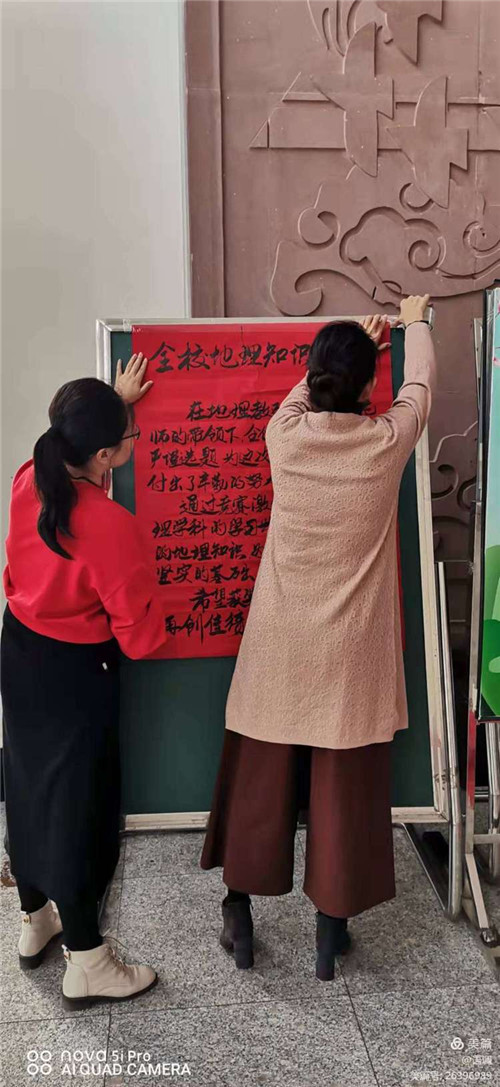 全校地理知识
在地理教
师的带领下,
严谨选题 为这次
付出了辛勤的努
通过竞赛激
理学科的学习
的地理知识
坚实的基础
希望获
再创佳绩
nova 5i Pro
AI QUAD CAMERA
美篇